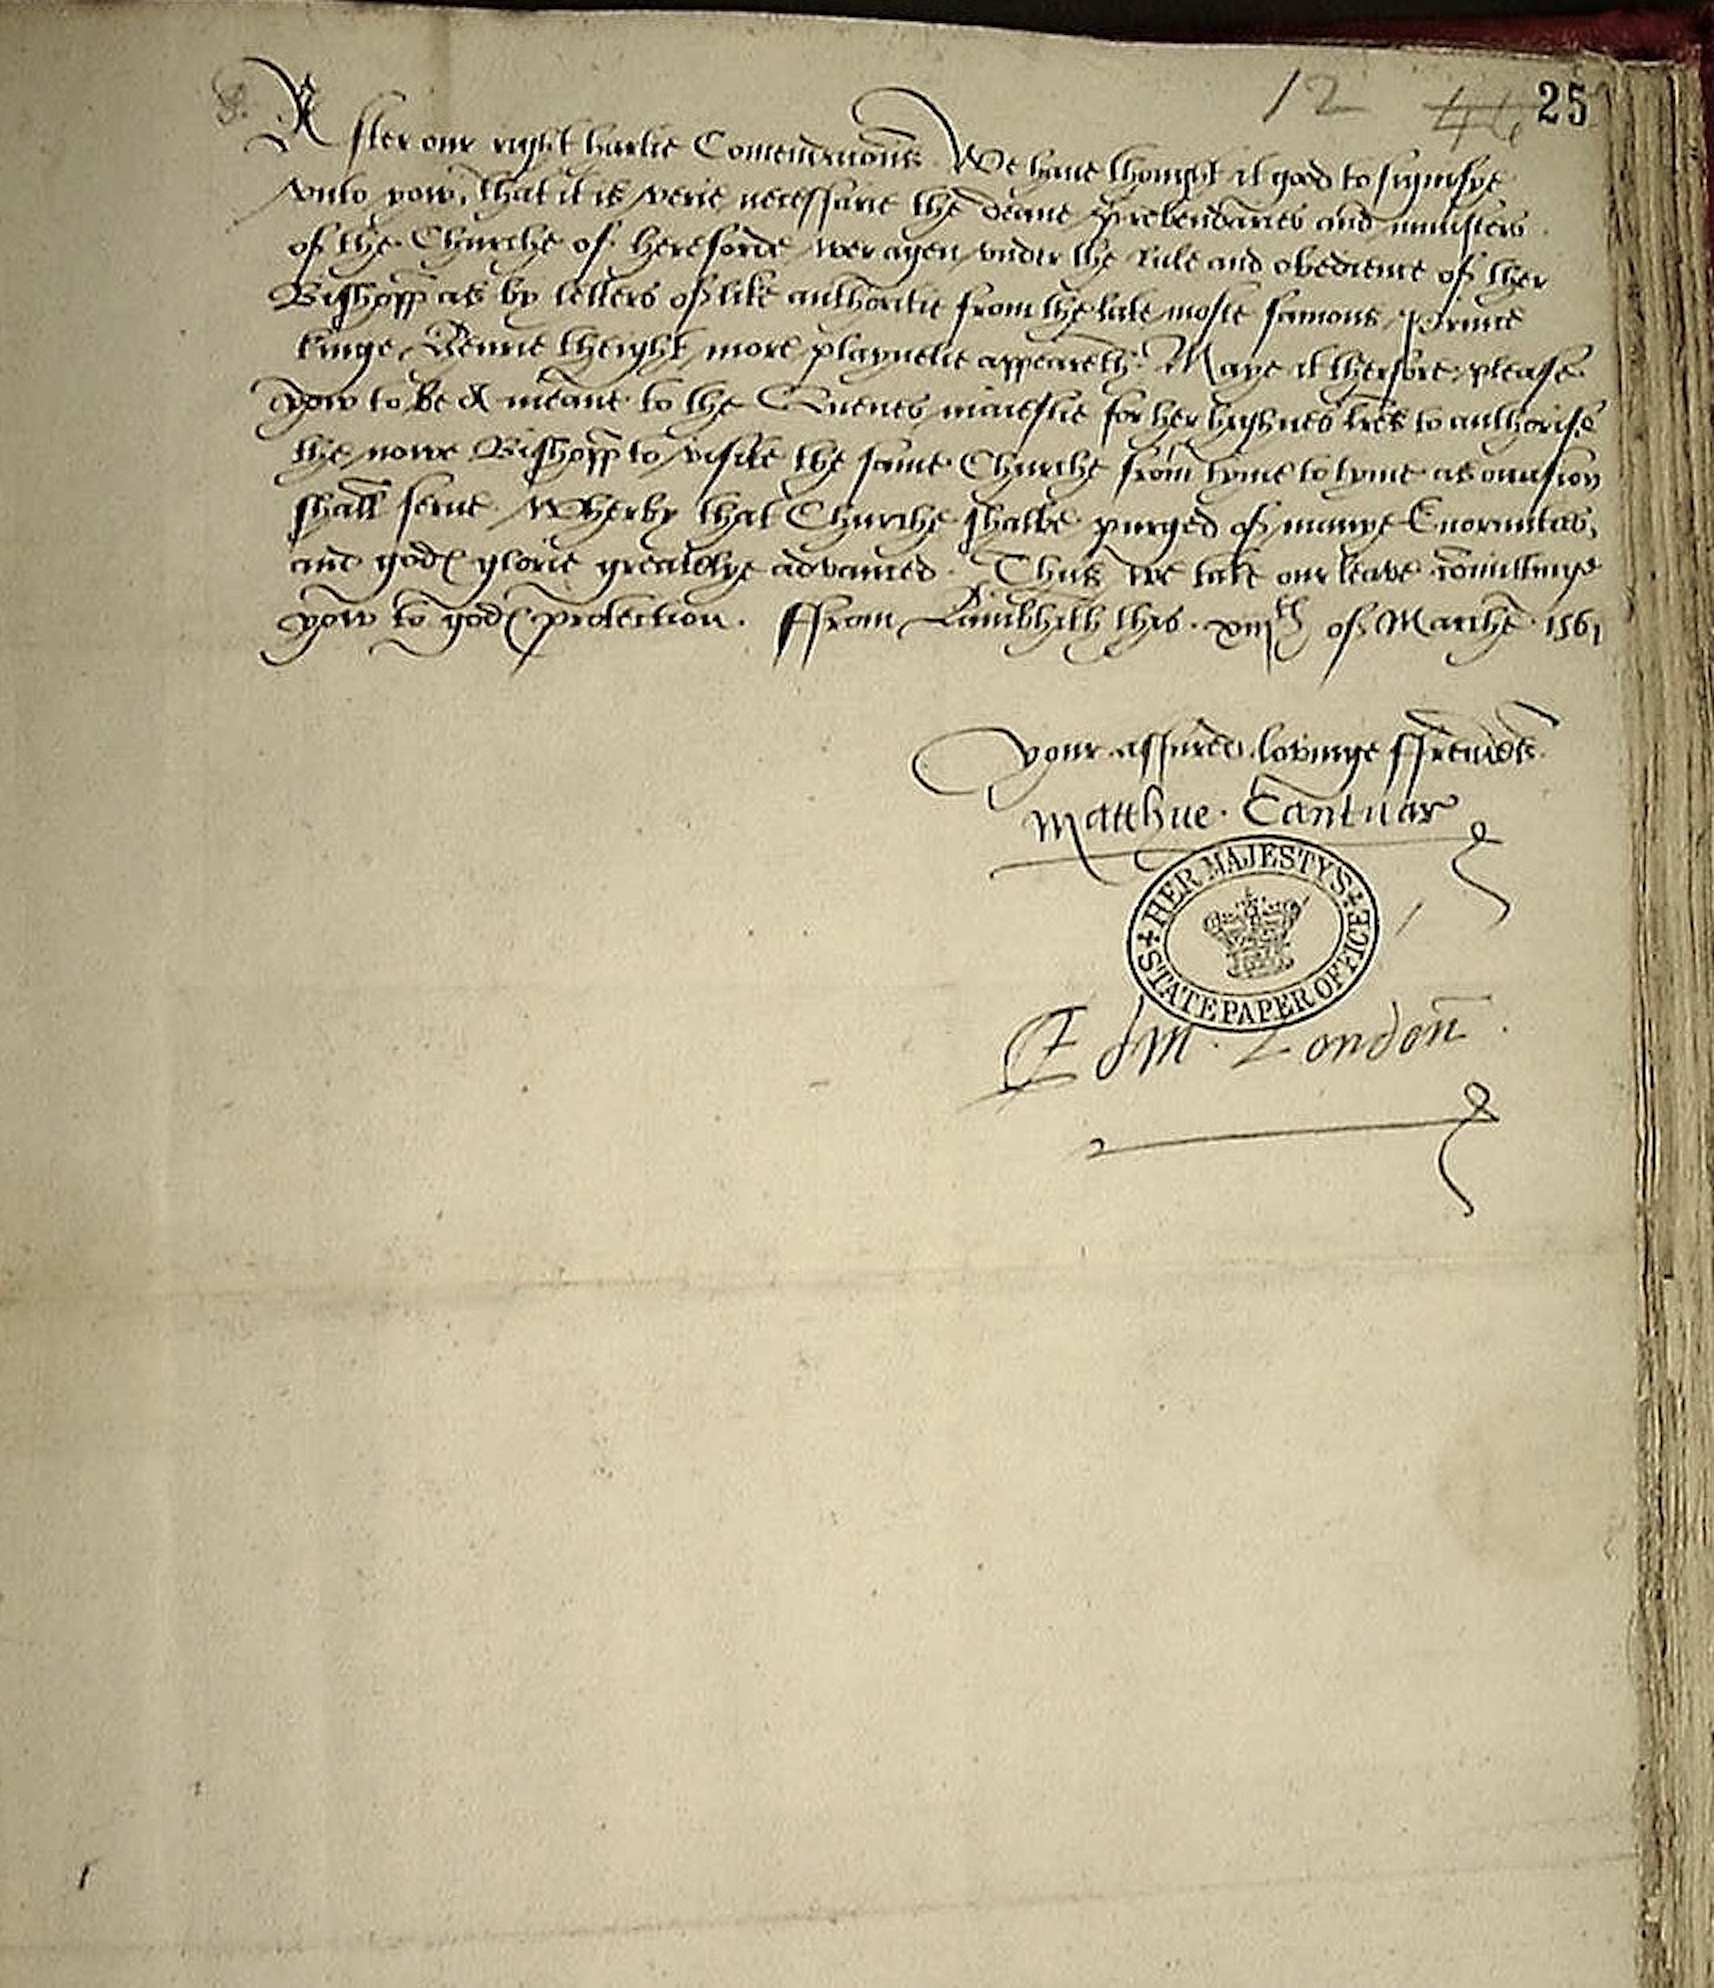 12 46 25
After our right hartie Comendacions. We haue thought it good to signifye
vnto yow, that it is verie necessarie the deane prebendaries and ministers
of the Churche of hereforde wer agen vnder the rule and obedience of ther
Bishopp as by letters of like authoritie from the late moste famous prince
kinge Henrie theight more playnelie appeareth. Maye it therfore please
yow to be a meane to the Quenes maiestie for her highnes lres to authorise
the nowe Bishopp to visite the same Churche from tyme to tyme as occasion
shall serue. Wherby that Churche shalbe purged of manye Enormities,
and gods glorie greatelye advanced. Thus we take our leave comittinge
yow to gods protection. ffrom Lambhith this. xiijth of Marche. 1561
your assured lovinge ffrendes.
Matthue. Cantuar
HER MAJESTY'S STATE PAPER OFFICE
Edm. London